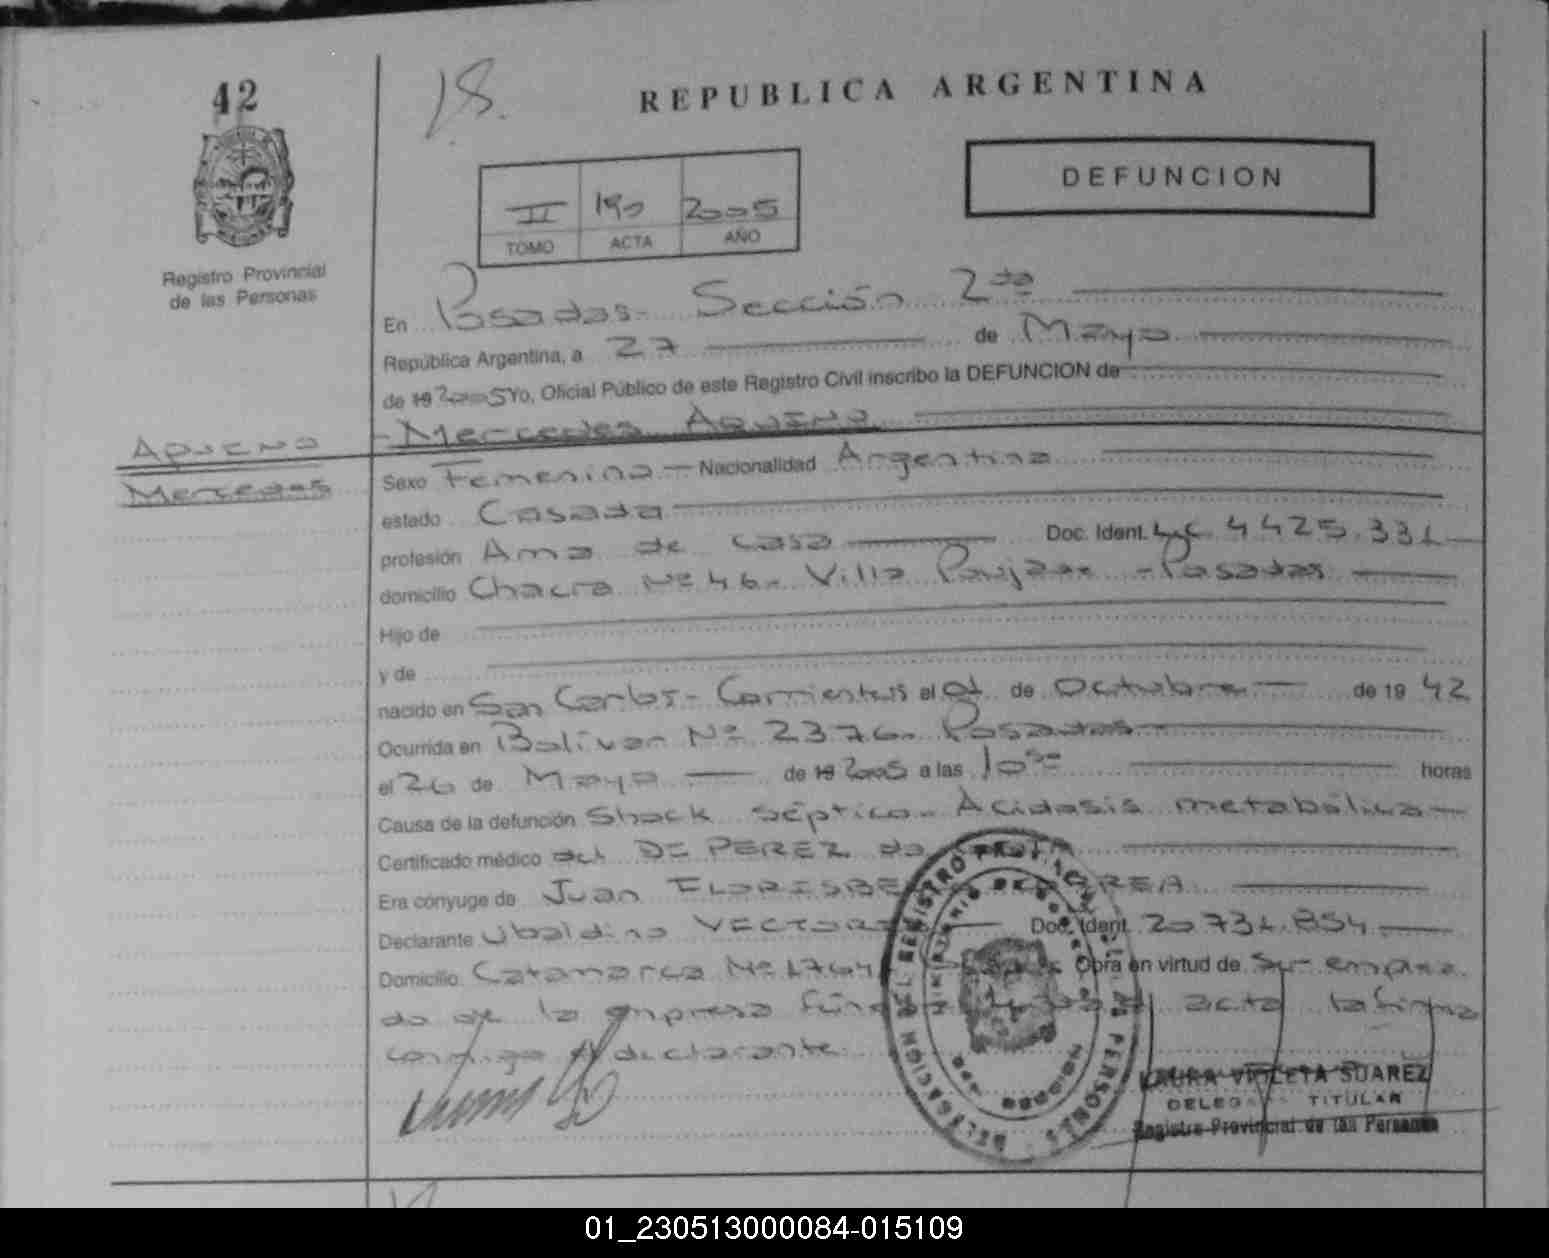 42
18.
REPUBLICA ARGENTINA
DEFUNCION
II 190 2005
TOMO ACTA AÑO
Registro Provincial
de las Personas
En Posadas - Sección 2da
República Argentina, a 27 de Mayo
de 19 2005 Yo, Oficial Público de este Registro Civil inscribo la DEFUNCION de
Mercedes Aquino
Aquino
Mercedes
Sexo Femenino - Nacionalidad Argentina
estado Casada
profesión Ama de casa Doc. Ident. L.C. 4.425.331
domicilio Chacra Nº 46. Villa - Posadas
Hijo de
y de
nacido en San Carlos - Corrientes el 01 de Octubre de 19 42
Ocurrida en Bolívar Nº 2376. Posadas
el 26 de Mayo de 19 2005 a las 10 horas
Causa de la defunción Shock séptico - Acidosis metabólica
Certificado médico del DE PEREZ
Era cónyuge de Juan
Declarante Ubaldino Doc. Ident. 20.731.854
Domicilio Catamarca Nº 1764 Obra en virtud de ser emplea
do de la empresa acta la firma
conmigo el declarante.
DELEGACION DEL REGISTRO PROVINCIAL DE LAS PERSONAS
LAURA VIOLETA SUAREZ
DELEGADA TITULAR
Registro Provincial de las Personas
01_230513000084-015109